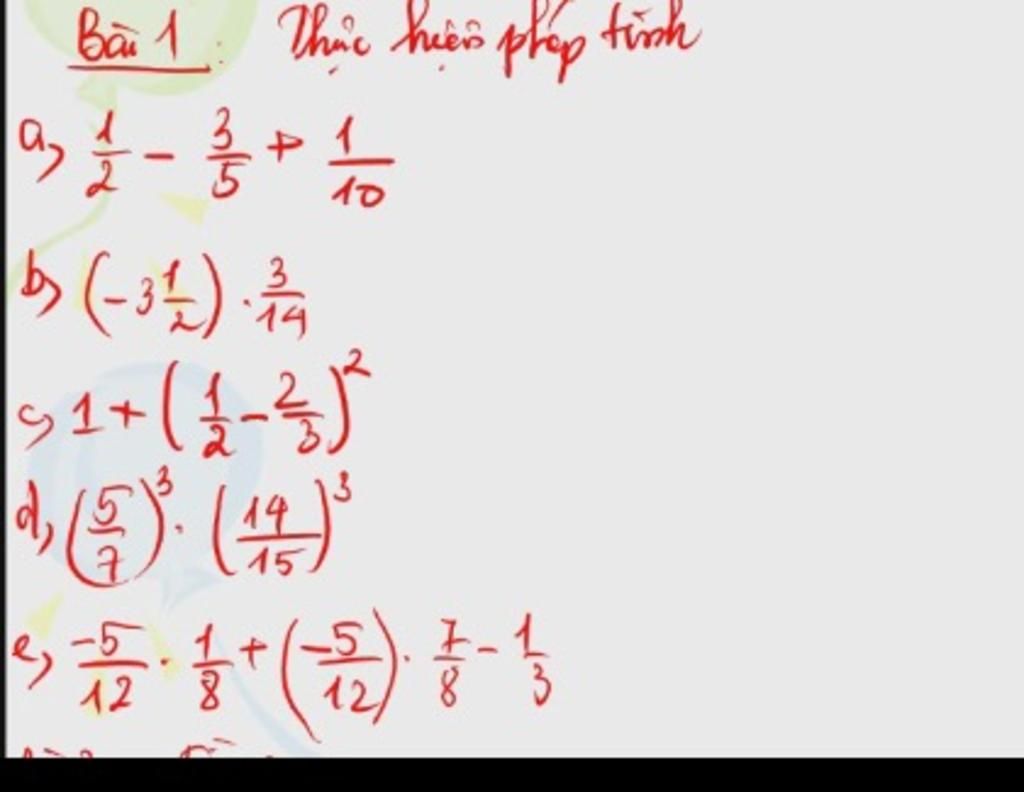 Bài 1: Thực hiện phép tính
a, 1/2 - 3/5 + 1/10
b, (-3 1/2) . 3/14
c, 1 + (1/2 - 2/3)^2
d, (5/7)^3 . (14/15)^3
e, -5/12 . 1/8 + (-5/12) . 7/8 - 1/3